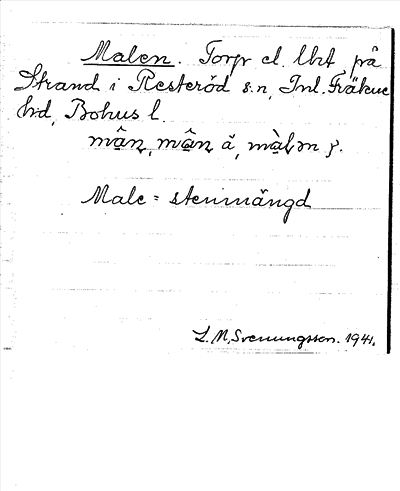 Malen. Torp el. lht på
Strand i Resteröd s:n, Inl. Fräkne
hd, Bohus l.
Male = stenmängd
S. M. Svenungsson. 1941.